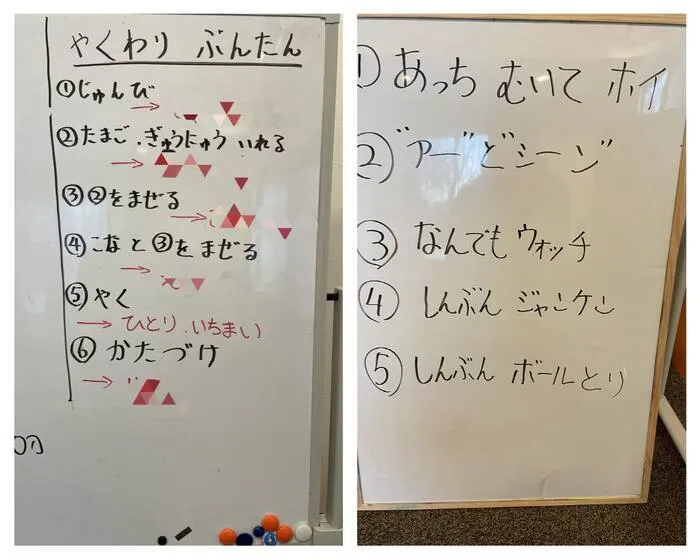 やくわり ぶんたん
①じゅんび
→
②たまご.ぎゅうにゅう いれる
→
③②をまぜる
→
④こなと③をまぜる
→
⑤やく
→ ひとり.いちまい
⑥かたづけ
→
①あっち むいて ホイ
②"アー"ど"シーン"
③なんでも ウォッチ
④しんぶん ジャンケン
⑤しんぶん ボールとり